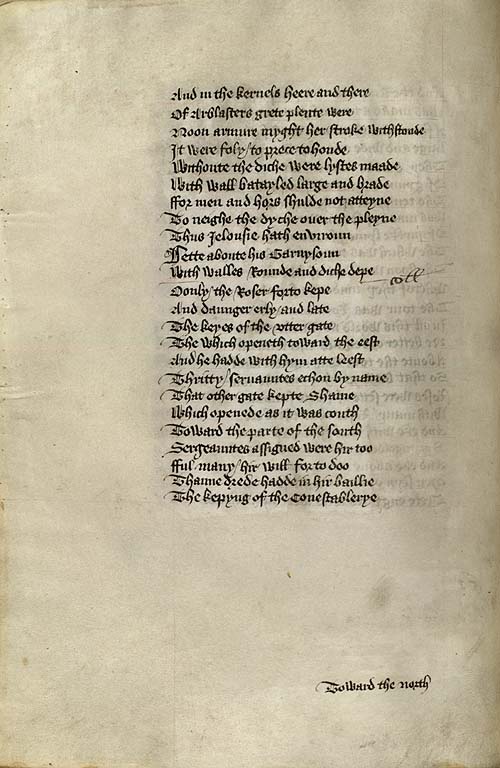 And in the kernels heere and there
Of Arblasters grete plente were
Noon armure myght her stroke withstonde
It were foly / to prece to honde
Withoute the diche were lystes maade
With wall batayled large and brade
ffor men and hors shulde not atteyne
To neighe the dyche ouer the pleyne
Thus Jelousie hath enviroun
Sette aboute his Garnysoun
With walles Rounde and diche depe
Oonly the Roser forto kepe
coll
And daunger erly and late
The keyes of the vtter gate
The which openeth toward the eest
And he hadde with hym atte leest
Thritty / seruauntes echon by name
That other gate kepte Shame
Which openede as it was couth
Toward the parte of the south
Sergeauntes assigned were hir too
fful many / hir will forto doo
Thanne drede hadde in hir baillie
The kepyng of the Conestablerye
Toward the north